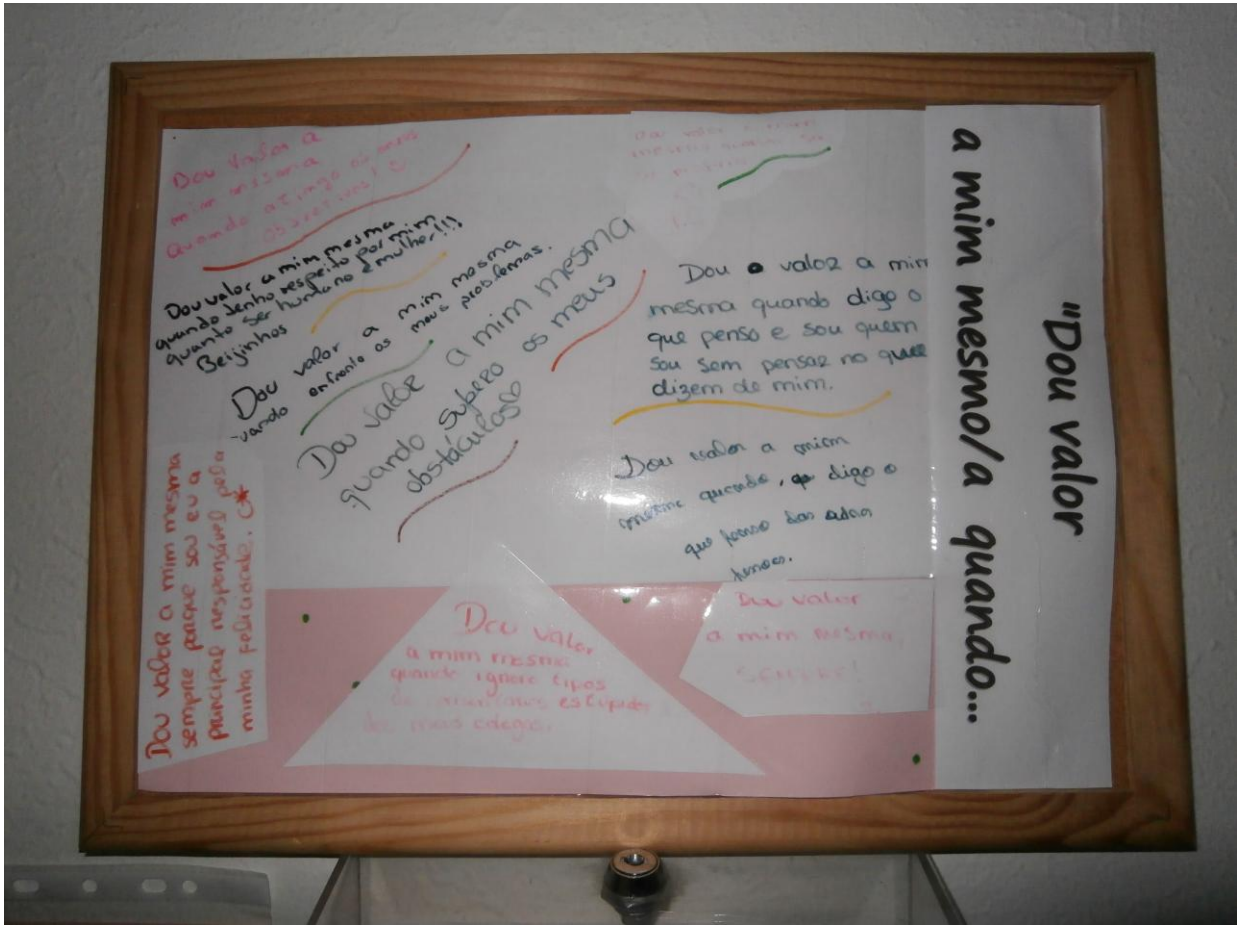 "Dou valor
a mim mesmo/a quando...
Dou valor a
mim mesma
Quando atinjo os meus
objetivos!
Dou valor a mim mesma
quando tenho respeito por mim
quanto ser humano e mulher!!!
Beijinhos
Dou valor a mim mesma
uando enfrento os meus problemas.
Dou valor a mim mesma
quando supero os meus
obstáculos
mesmo quando
Dou o valor a mim
mesma quando digo o
que penso e sou quem
sou sem pensar no que
dizem de mim.
Dou valor a mim
mesma quando, digo o
que penso das
pessoas.
Dou valor a mim mesma
sempre porque sou eu a
principal responsável pela
minha felicidade.
Dou valor
a mim mesma
quando ignoro tipos
de estupidos
dos meus colegas.
Dou valor
a mim mesma,
SEMPRE!